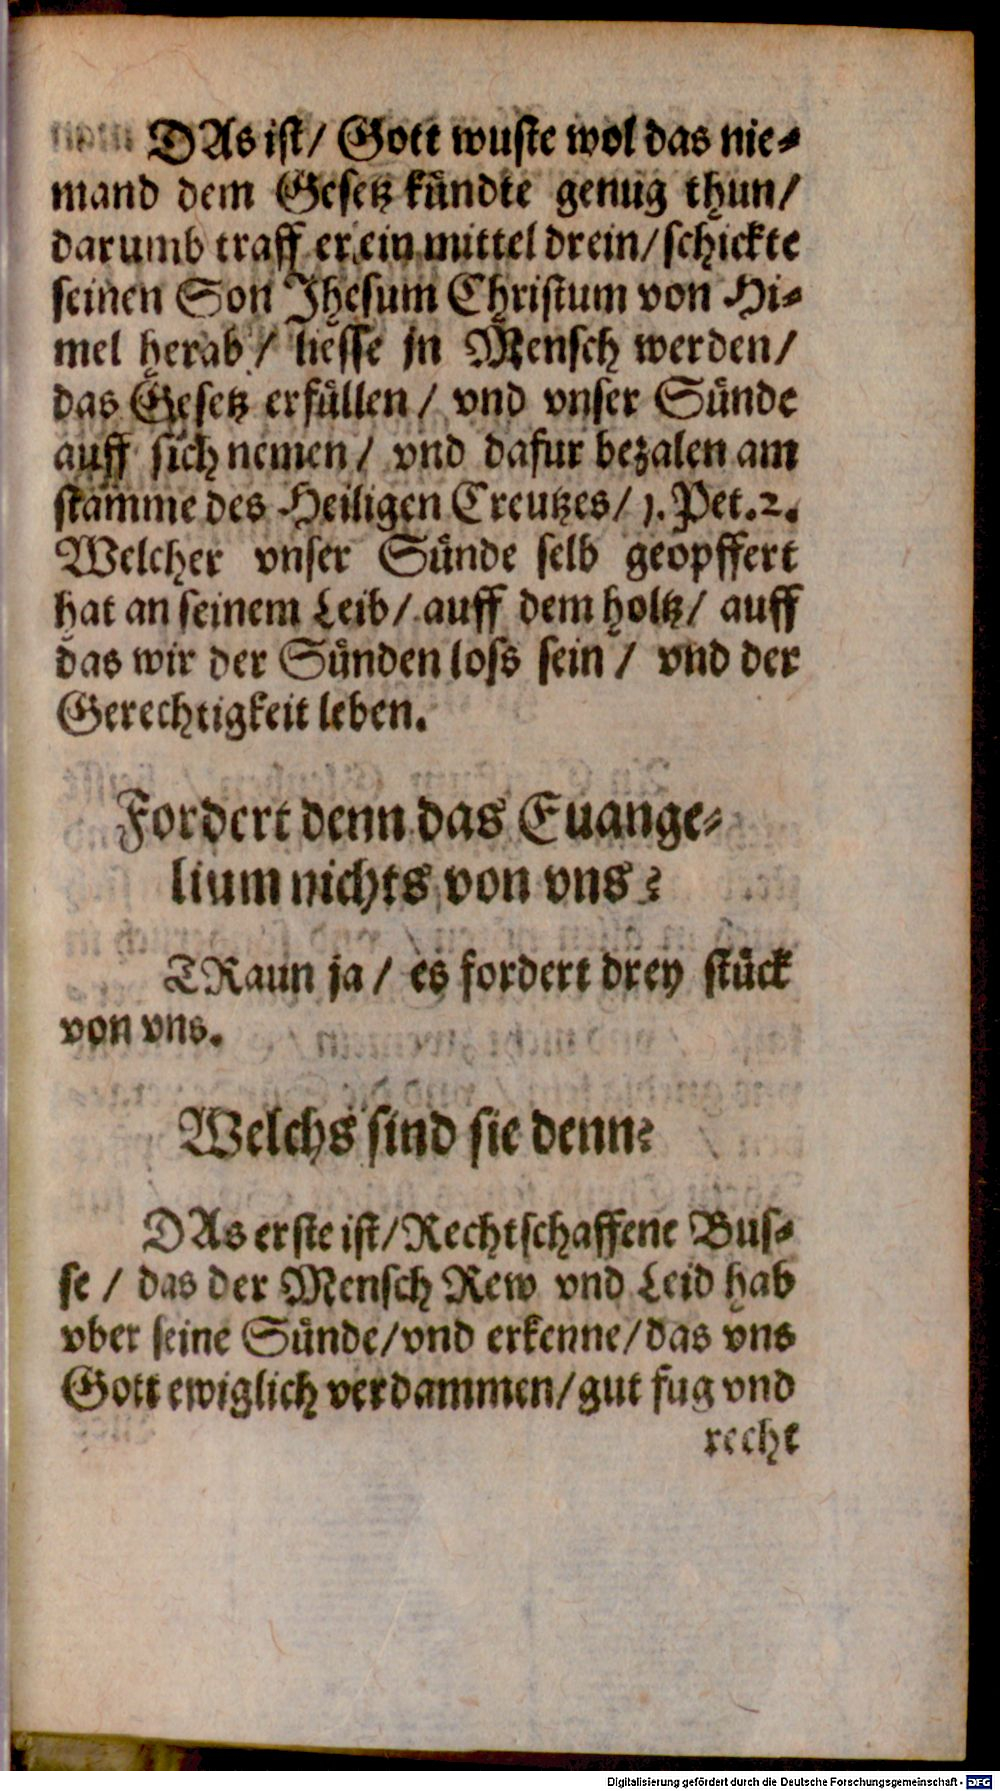 DAs ist/ Gott wuste wol das nie-
mand dem Gesetz kündte genug thun/
darumb traff er ein mittel drein/ schickte
seinen Son Jhesum Christum von Hi-
mel herab/ liesse jn Mensch werden/
das Gesetz erfüllen/ vnd vnser Sünde
auff sich nemen/ vnd dafur bezalen am
stamme des Heiligen Creutzes/ 1. Pet. 2.
Welcher vnser Sünde selb geopffert
hat an seinem Leib/ auff dem holtz/ auff
das wir der Sünden loss sein/ vnd der
Gerechtigkeit leben.
Fordert denn das Euange-
lium nichts von vns?
TRaun ja/ es fordert drey stück
von vns.
Welchs sind sie denn?
DAs erste ist/ Rechtschaffene Bus-
se/ das der Mensch Rew vnd Leid hab
vber seine Sünde/ vnd erkenne/ das vns
Gott ewiglich verdammen/ gut fug vnd
recht
Digitalisierung gefördert durch die Deutsche Forschungsgemeinschaft - DFG